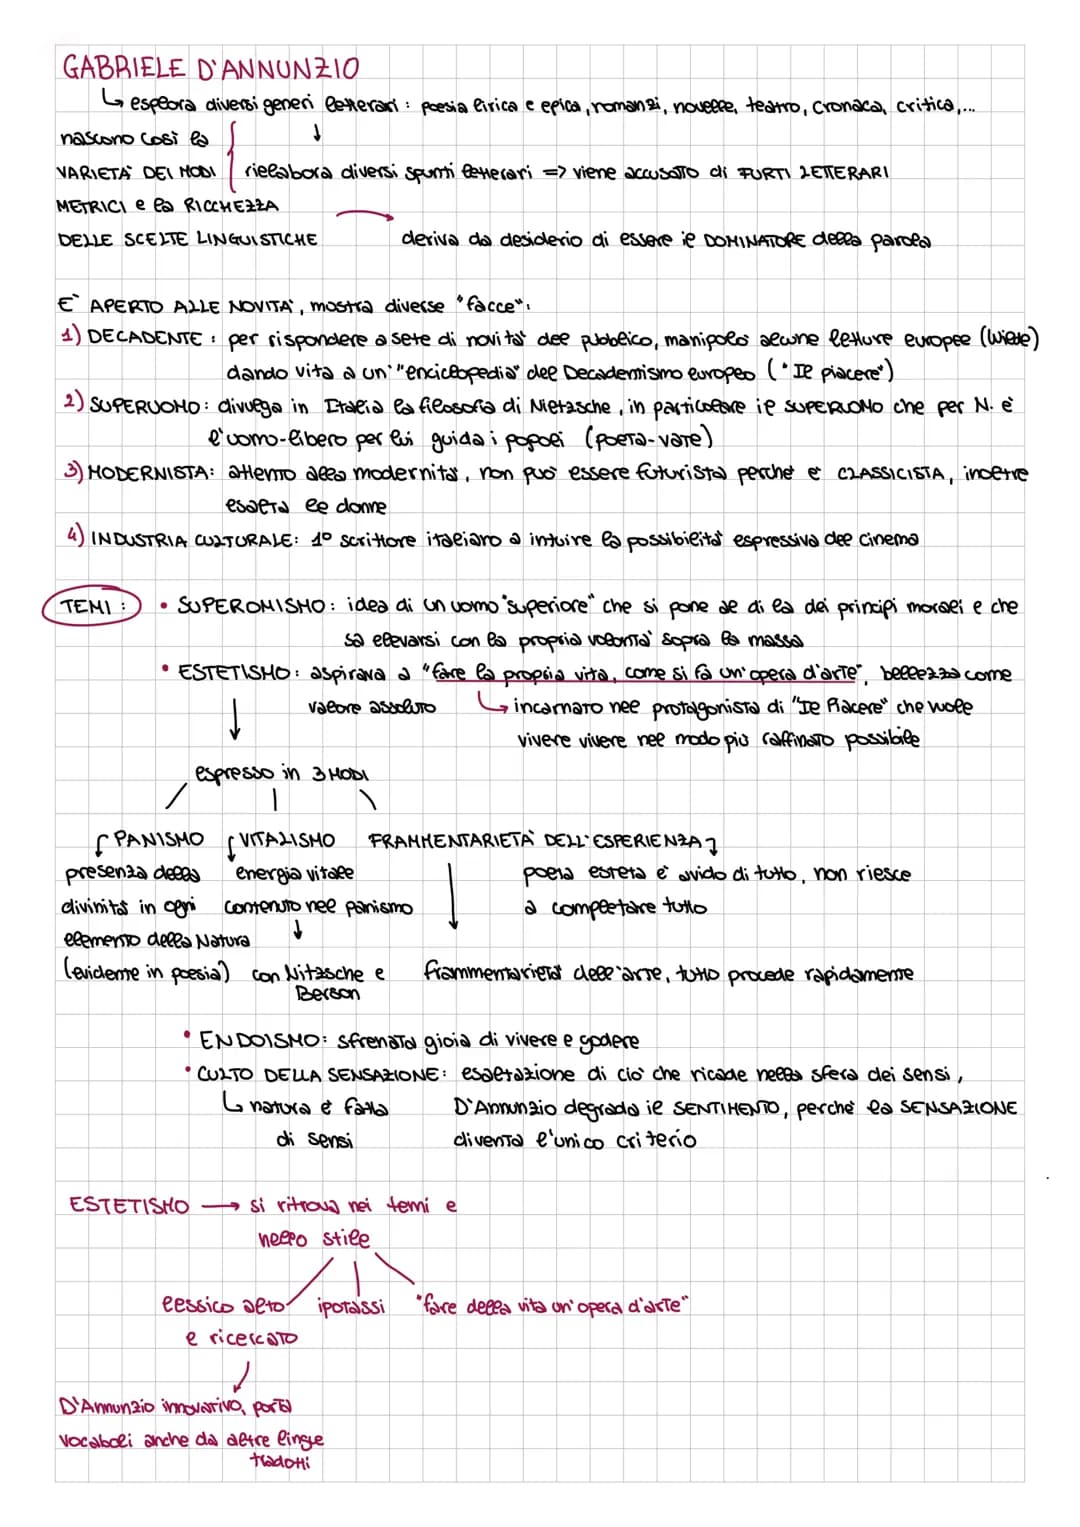 GABRIELE D'ANNUNZIO
↳ esplora diversi generi letterari: poesia lirica e epica, romanzi, novelle, teatro, cronaca, critica,...
nascono così la
VARIETA' DEI MODI rielabora diversi spunti letterari => viene accusato di FURTI LETTERARI
METRICI e la RICCHEZZA
DELLE SCELTE LINGUISTICHE deriva da desiderio di essere il DOMINATORE della parola
E' APERTO ALLE NOVITA', mostra diverse "facce":
1) DECADENTE: per rispondere a sete di novità del pubblico, manipola alcune letture europee (Wilde)
dando vita a un'"enciclopedia" del Decadentismo europeo ("Il piacere")
2) SUPERUOMO: divulga in Italia la filosofia di Nietzsche, in particolare il SUPERUOMO che per N. è
l'uomo-libero per lui guida i popoli (poeta-vate)
3) MODERNISTA: attento alla modernità, non può essere futurista perché è CLASSICISTA, inoltre
esalta le donne
4) INDUSTRIA CULTURALE: 1° scrittore italiano a intuire la possibilità espressiva del cinema
TEMI: • SUPEROMISMO: idea di un uomo "superiore" che si pone al di là dei principi morali e che
sa elevarsi con la propria volontà sopra la massa
• ESTETISMO: aspirava a "fare la propria vita, come si fa un'opera d'arte", bellezza come
valore assoluto ↳ incarnato nel protagonista di "Il Piacere" che vuole
vivere vivere nel modo più raffinato possibile
espresso in 3 MODI
PANISMO VITALISMO FRAMMENTARIETÀ DELL'ESPERIENZA
presenza della energia vitale poeta esteta è avido di tutto, non riesce
divinità in ogni contenuto nel panismo a completare tutto
elemento della Natura
(evidente in poesia) con Nitzsche e frammentarietà dell'arte, tutto procede rapidamente
Berson
• ENDOISMO: sfrenata gioia di vivere e godere
• CULTO DELLA SENSAZIONE: esaltazione di ciò che ricade nella sfera dei sensi,
↳ natura è fatta D'Annunzio degrada il SENTIMENTO, perché la SENSAZIONE
di sensi diventa l'unico criterio
ESTETISMO → si ritrova nei temi e
nello stile
lessico alto ipotassi "fare della vita un'opera d'arte"
e ricercato
D'Annunzio innovativo, porta
vocaboli anche da altre lingue
tradotti